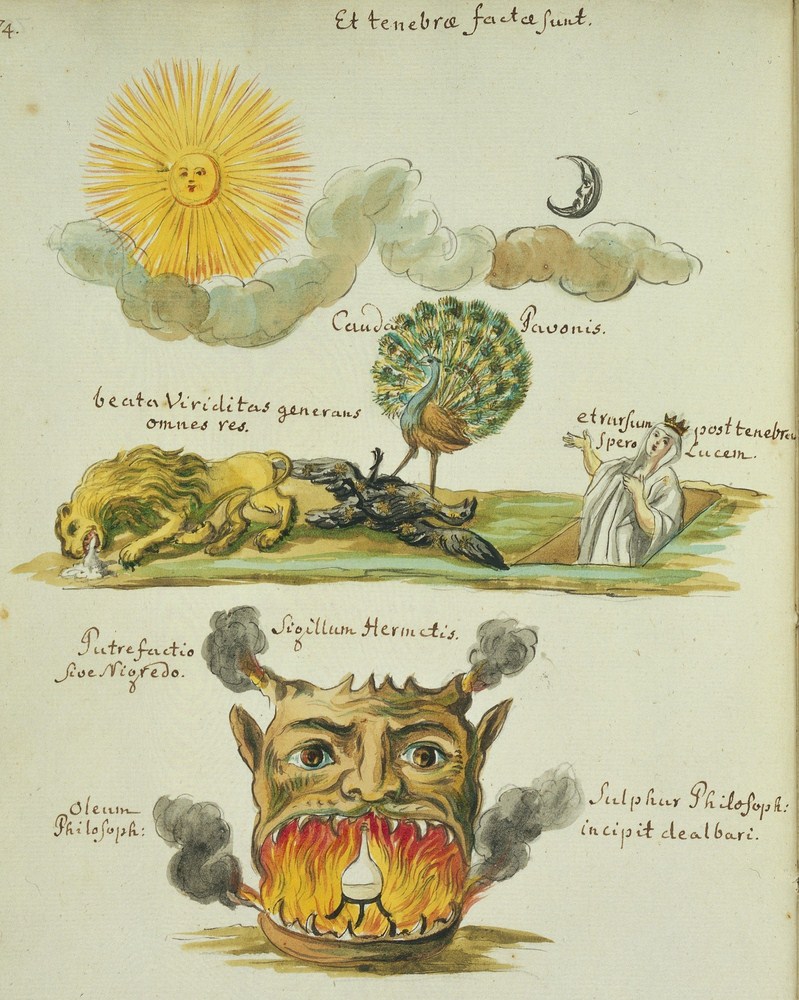 74.
Et tenebræ factæ sunt.
Cauda Pavonis.
beata Viriditas generans
omnes res.
et rursum
Spero
post tenebras
Lucem.
Sigillum Hermetis.
Putrefactio
sive Nigredo.
Oleum
Philosoph:
Sulphur Philosoph:
incipit dealbari.